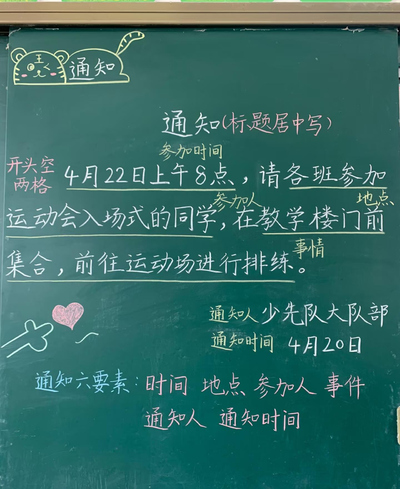 通知
通知(标题居中写)
参加时间
开头空
两格
4月22日上午8点，请各班参加
参加人 地点
运动会入场式的同学，在教学楼门前
事情
集合，前往运动场进行排练。
通知人 少先队大队部
通知时间 4月20日
通知六要素：时间 地点 参加人 事件
通知人 通知时间